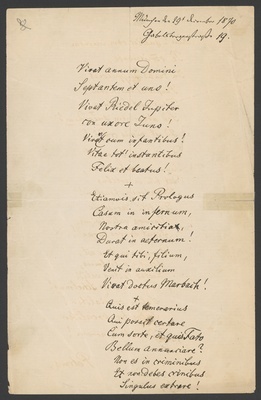 München den 19t December 1870
Gabelsbergerstraße 19.
Vivat annum Domini
Septantem et uns!
Vivat Riedel Jupiter
con uxore Juno!
Vivat cum infantibus!
Vitae tot' instantibus
Felix et beatus!
+
Etiamsi sit Prologus
Casum in infernum,
Nostra amicitia,
Durat in aeternum!
Et qui tibi, filium,
Venit in auxilium
Vivat doctus Marbach!
+
Quis est temerarius
Qui possit certare
Cum sorte, et quo Fato
Bellum annunciare?
Non es in criminibus
Et non debes crinibus
Singulus extrare!